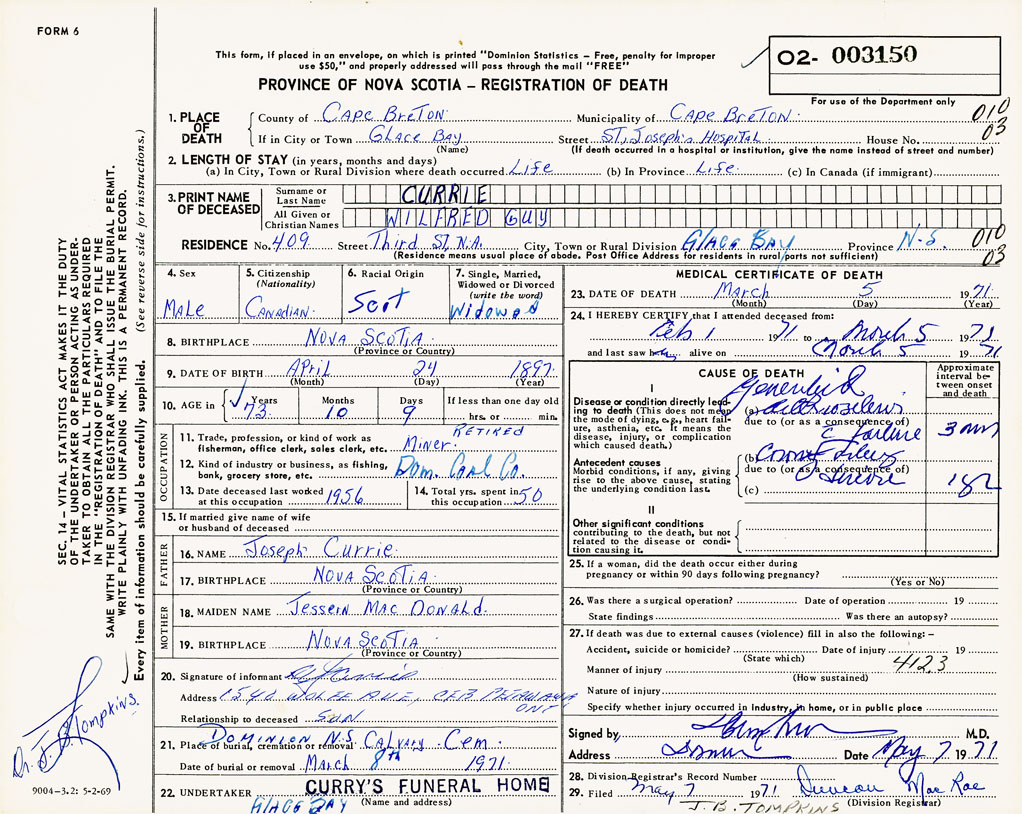 FORM 6
This form, if placed in an envelope, on which is printed "Dominion Statistics – Free, penalty for improper
use $50," and properly addressed will pass through the mail "FREE"
02- 003150
PROVINCE OF NOVA SCOTIA – REGISTRATION OF DEATH
For use of the Department only
1. PLACE OF DEATH County of Cape Breton Municipality of Cape Breton 010
If in City or Town Glace Bay Street St. Joseph's Hospital House No. 03
(Name) (If death occurred in a hospital or institution, give the name instead of street and number)
2. LENGTH OF STAY (in years, months and days)
(a) In City, Town or Rural Division where death occurred Life (b) In Province Life (c) In Canada (if immigrant)
3. PRINT NAME OF DECEASED Surname or Last Name CURRIE
All Given or Christian Names WILFRED GUY
RESIDENCE No. 409 Street Third St. N.A. City, Town or Rural Division Glace Bay Province N.S. 010
(Residence means usual place of abode. Post Office Address for residents in rural parts not sufficient) 03
SEC. 14 – VITAL STATISTICS ACT MAKES IT THE DUTY
OF THE UNDERTAKER OR PERSON ACTING AS UNDER-
TAKER TO OBTAIN ALL THE PARTICULARS REQUIRED
IN THE "REGISTRATION OF DEATH" AND TO FILE THE
SAME WITH THE DIVISION REGISTRAR WHO SHALL ISSUE THE BURIAL PERMIT.
WRITE PLAINLY WITH UNFADING INK. THIS IS A PERMANENT RECORD.
Every item of information should be carefully supplied. (See reverse side for instructions.)
4. Sex
Male
5. Citizenship
(Nationality)
Canadian
6. Racial Origin
Scot
7. Single, Married,
Widowed or Divorced
(write the word)
Widowed
8. BIRTHPLACE Nova Scotia
(Province or Country)
9. DATE OF BIRTH April 24 1897
(Month) (Day) (Year)
10. AGE in Years Months Days If less than one day old
73 10 9 hrs. or min.
OCCUPATION
11. Trade, profession, or kind of work as Retired
fisherman, office clerk, sales clerk, etc. Miner
12. Kind of industry or business, as fishing,
bank, grocery store, etc. Dom. Coal Co.
13. Date deceased last worked
at this occupation 1956
14. Total yrs. spent in
this occupation 50
15. If married give name of wife
or husband of deceased
FATHER
16. NAME Joseph Currie
17. BIRTHPLACE Nova Scotia
(Province or Country)
MOTHER
18. MAIDEN NAME Jessein Mac Donald
19. BIRTHPLACE Nova Scotia
(Province or Country)
20. Signature of informant
Address 1540 Wolfe Ave, CFB Petawawa
Ont
Relationship to deceased Son
21. Place of burial, cremation or removal Dominion N.S. Calvary Cem.
Date of burial or removal March 8th 1971
22. UNDERTAKER CURRY'S FUNERAL HOME
Glace Bay (Name and address)
MEDICAL CERTIFICATE OF DEATH
23. DATE OF DEATH March 5 1971
(Month) (Day) (Year)
24. I HEREBY CERTIFY that I attended deceased from:
Feb 1 1971 to March 5 1971
and last saw alive on March 5 1971
CAUSE OF DEATH
Approximate
interval be-
tween onset
and death
I
Disease or condition directly lead-
ing to death (This does not mean
the mode of dying, e.g., heart fail-
ure, asthenia, etc. It means the
disease, injury, or complication
which caused death.)
(a)
due to (or as a consequence of)
c failure
Antecedent causes
Morbid conditions, if any, giving
rise to the above cause, stating
the underlying condition last.
(b)
due to (or as a consequence of)
(c)
II
Other significant conditions
contributing to the death, but not
related to the disease or condi-
tion causing it.
25. If a woman, did the death occur either during
pregnancy or within 90 days following pregnancy?
(Yes or No)
26. Was there a surgical operation? Date of operation 19
State findings Was there an autopsy?
27. If death was due to external causes (violence) fill in also the following: –
Accident, suicide or homicide? Date of injury 19
(State which) 4123
Manner of injury
(How sustained)
Nature of injury
Specify whether injury occurred in Industry, in home, or in public place
Signed by M.D.
Address Date May 7 1971
28. Division Registrar's Record Number
29. Filed May 7 1971 Duncan MacRae
J. B. TOMPKINS (Division Registrar)
Dr. J. B. Tompkins
9004-3.2: 5-2-69